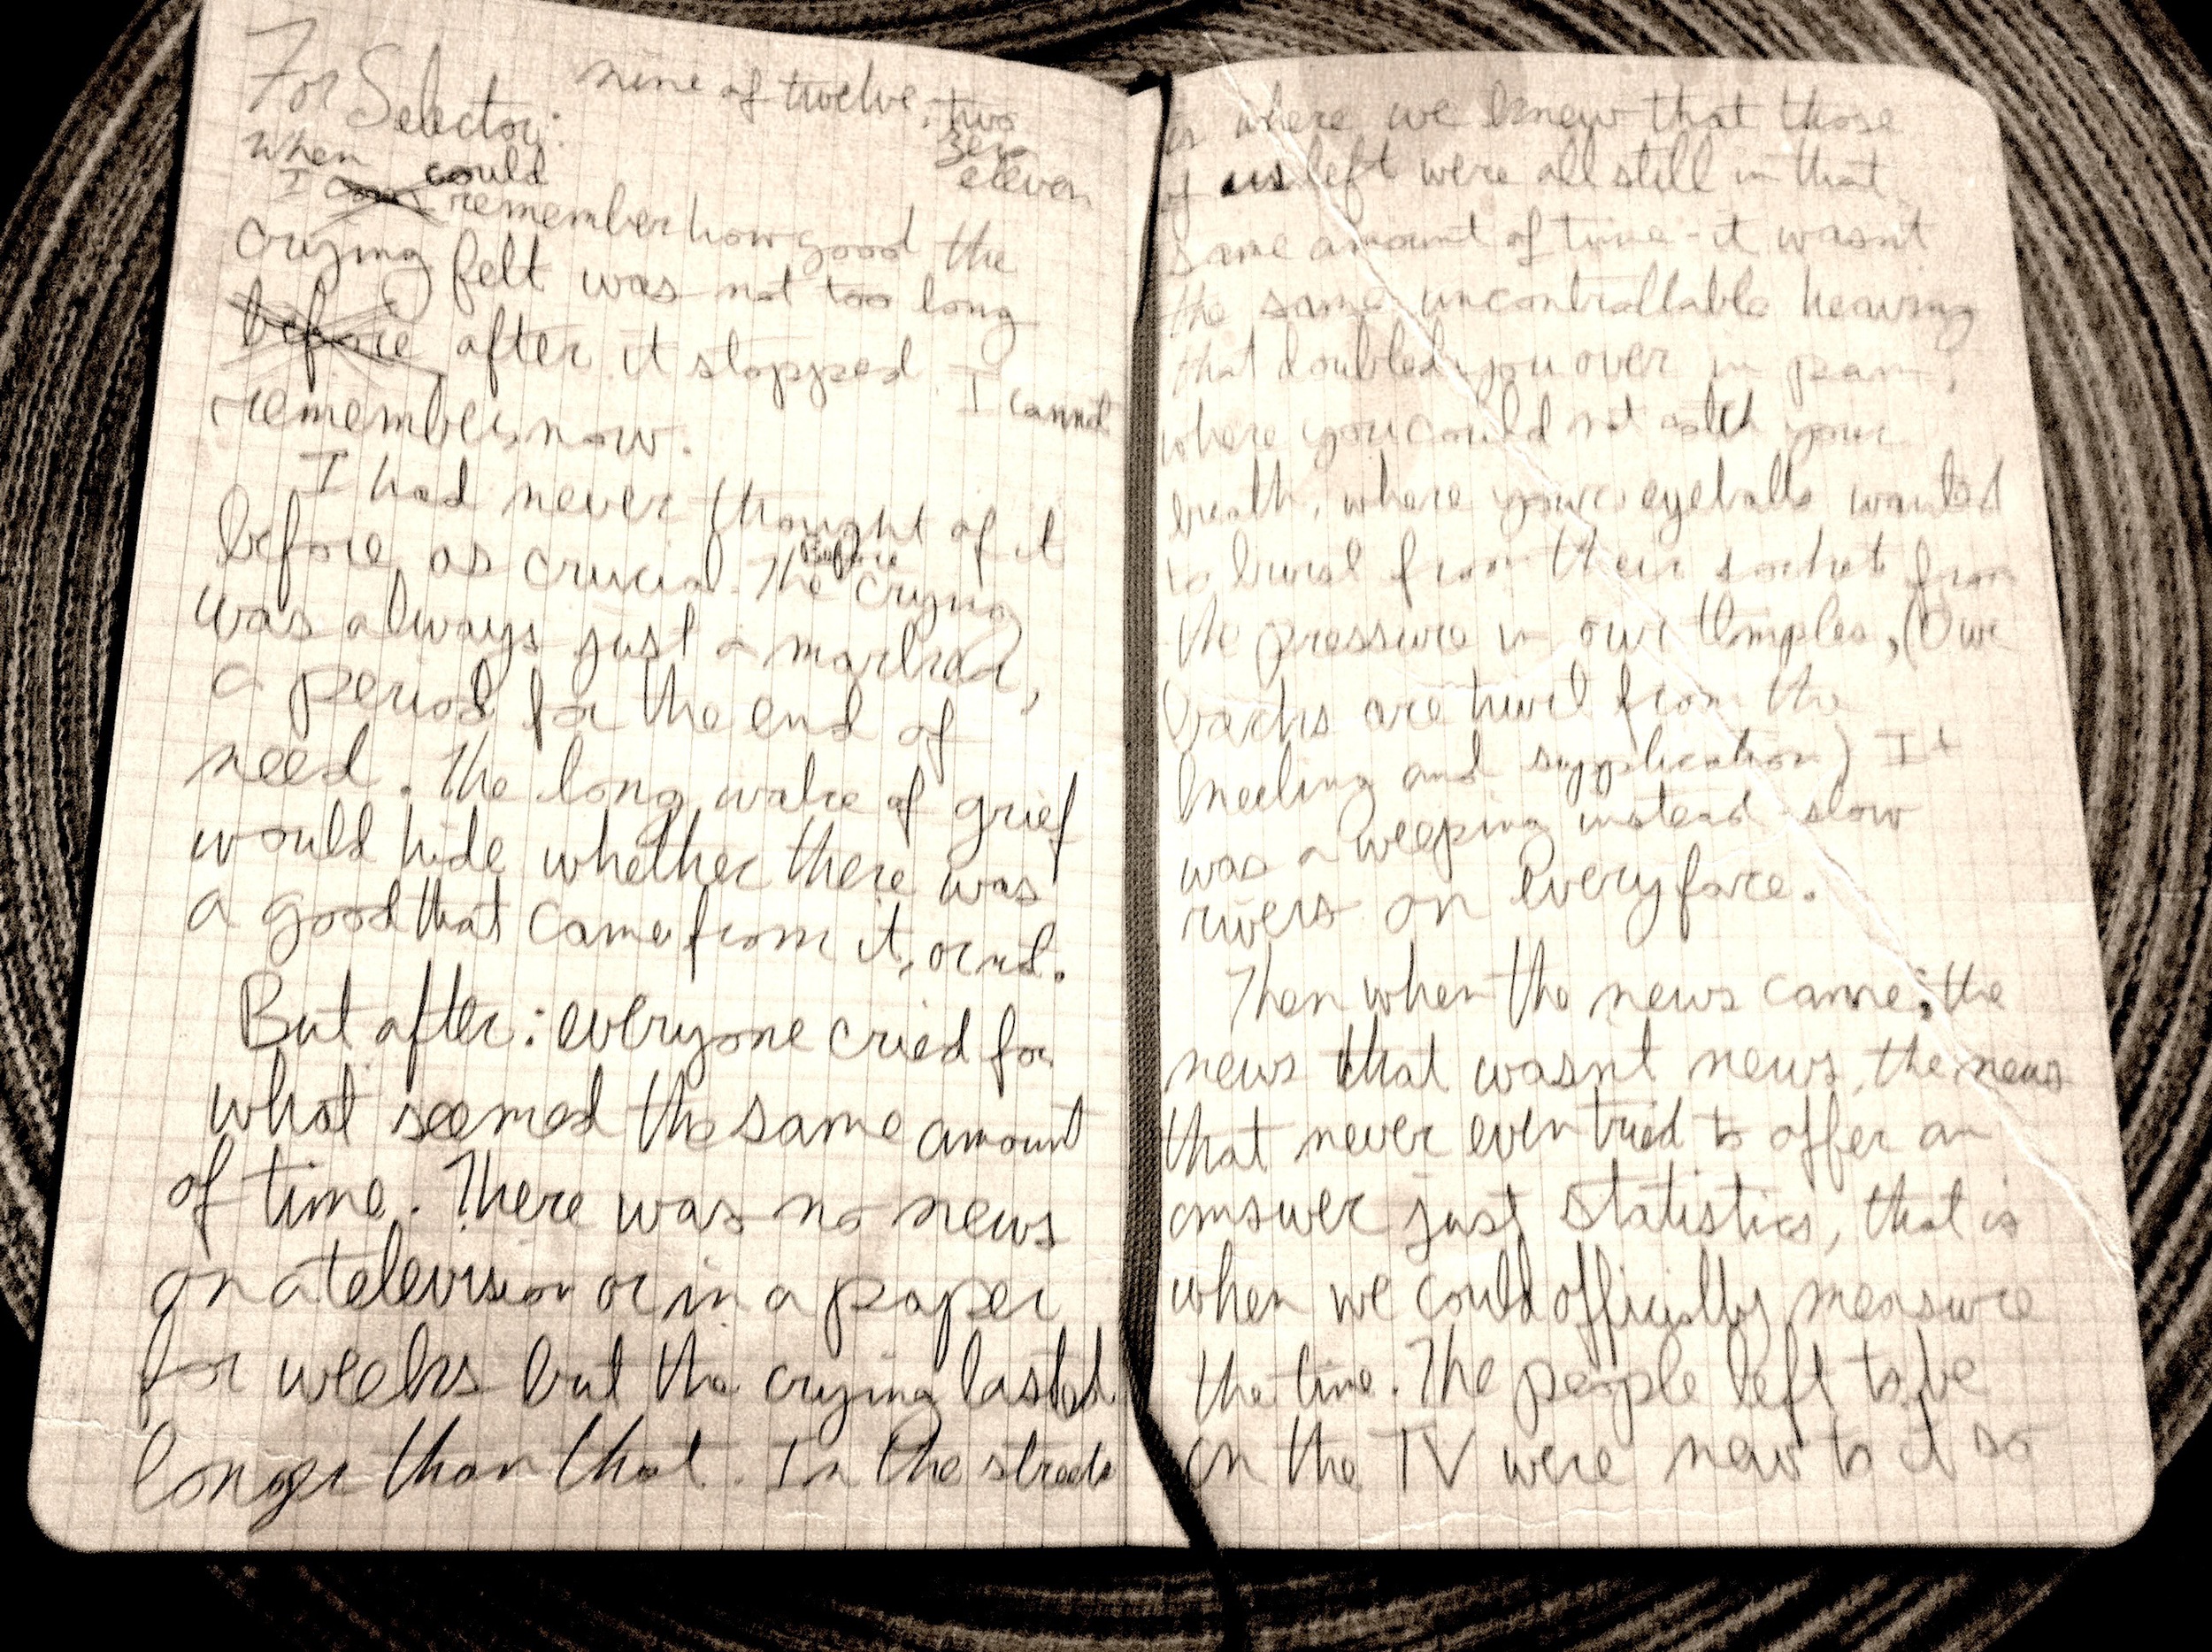 For Selector: nine of twelve, two
zero
eleven
When
I could remember how good the
crying felt was not too long
before after it stopped. I cannot
remember now.
I had never thought of it
before as crucial. The Before crying
was always just a marker,
a period for the end of
need. The long wake of grief
would hide whether there was
a good that came from it, or not.
But after: everyone cried for
what seemed the same amount
of time. There was no news
on a television or in a paper
for weeks but the crying lasted
longer than that. In the streets
is where we knew that those
of us left were all still in that
same amount of time - it wasn't
the same uncontrollable heaving
that doubled you over in pain,
where you could not catch your
breath, where your eyeballs wanted
to burst from their sockets from
the pressure in our temples, (Our
backs are hurt from the
kneeling and supplication) It
was a weeping instead slow
rivers on every face.
Then when the news came, the
news that wasn't news, the news
that never even tried to offer an
answer just statistics, that is
when we could officially measure
the time. The people left to be
on the TV were new to it so